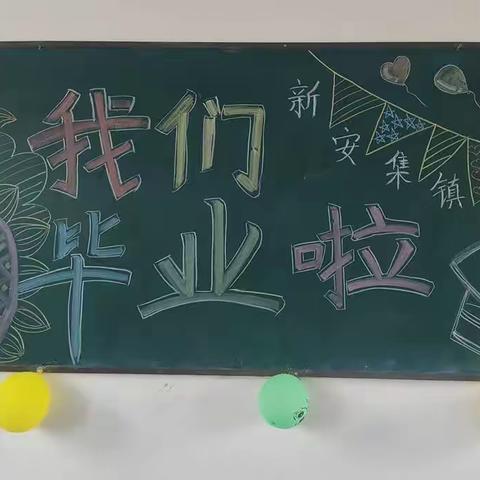 我们
毕业啦
新安集镇